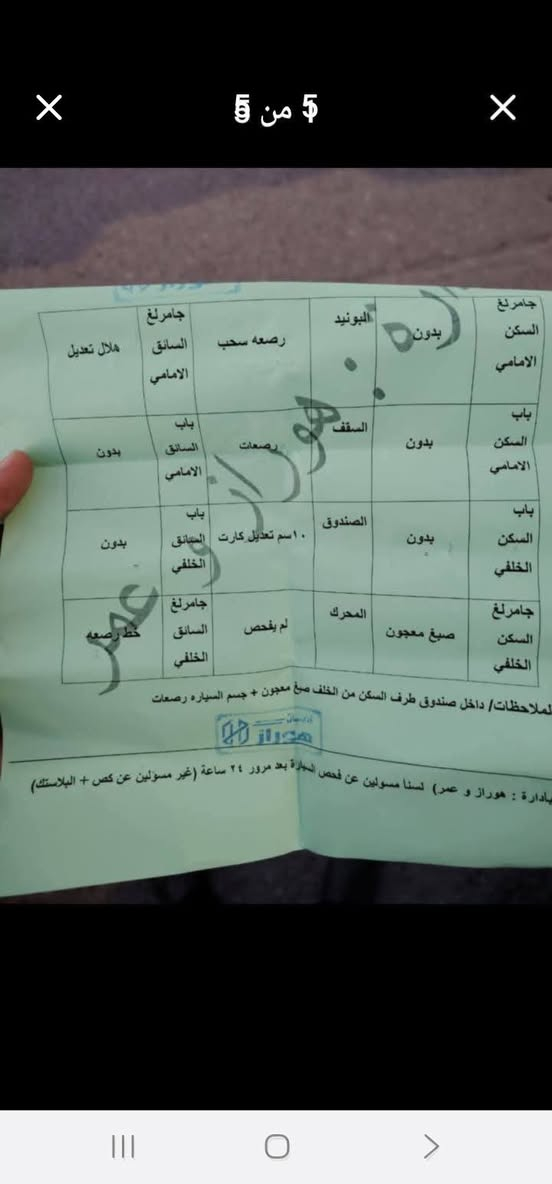 5 من 5
جامرلغ السكن الامامي
بدون
البونيد
رصعه سحب
جامرلغ السائق الامامي
هلال تعديل
باب السكن الامامي
بدون
السقف
رصعات
باب السائق الامامي
بدون
باب السكن الخلفي
بدون
الصندوق
١٠سم تعديل كارت
باب السائق الخلفي
بدون
جامرلغ السكن الخلفي
صبغ معجون
المحرك
لم يفحص
جامرلغ السائق الخلفي
خط رصعه
الملاحظات/ داخل صندوق طرف السكن من الخلف صبغ معجون + جسم السياره رصعات
هوراز
بادارة : هوراز و عمر) لسنا مسولين عن فحص السيارة بعد مرور ٢٤ ساعة (غير مسؤلين عن كص + البلاستك)
هوراز و عمر